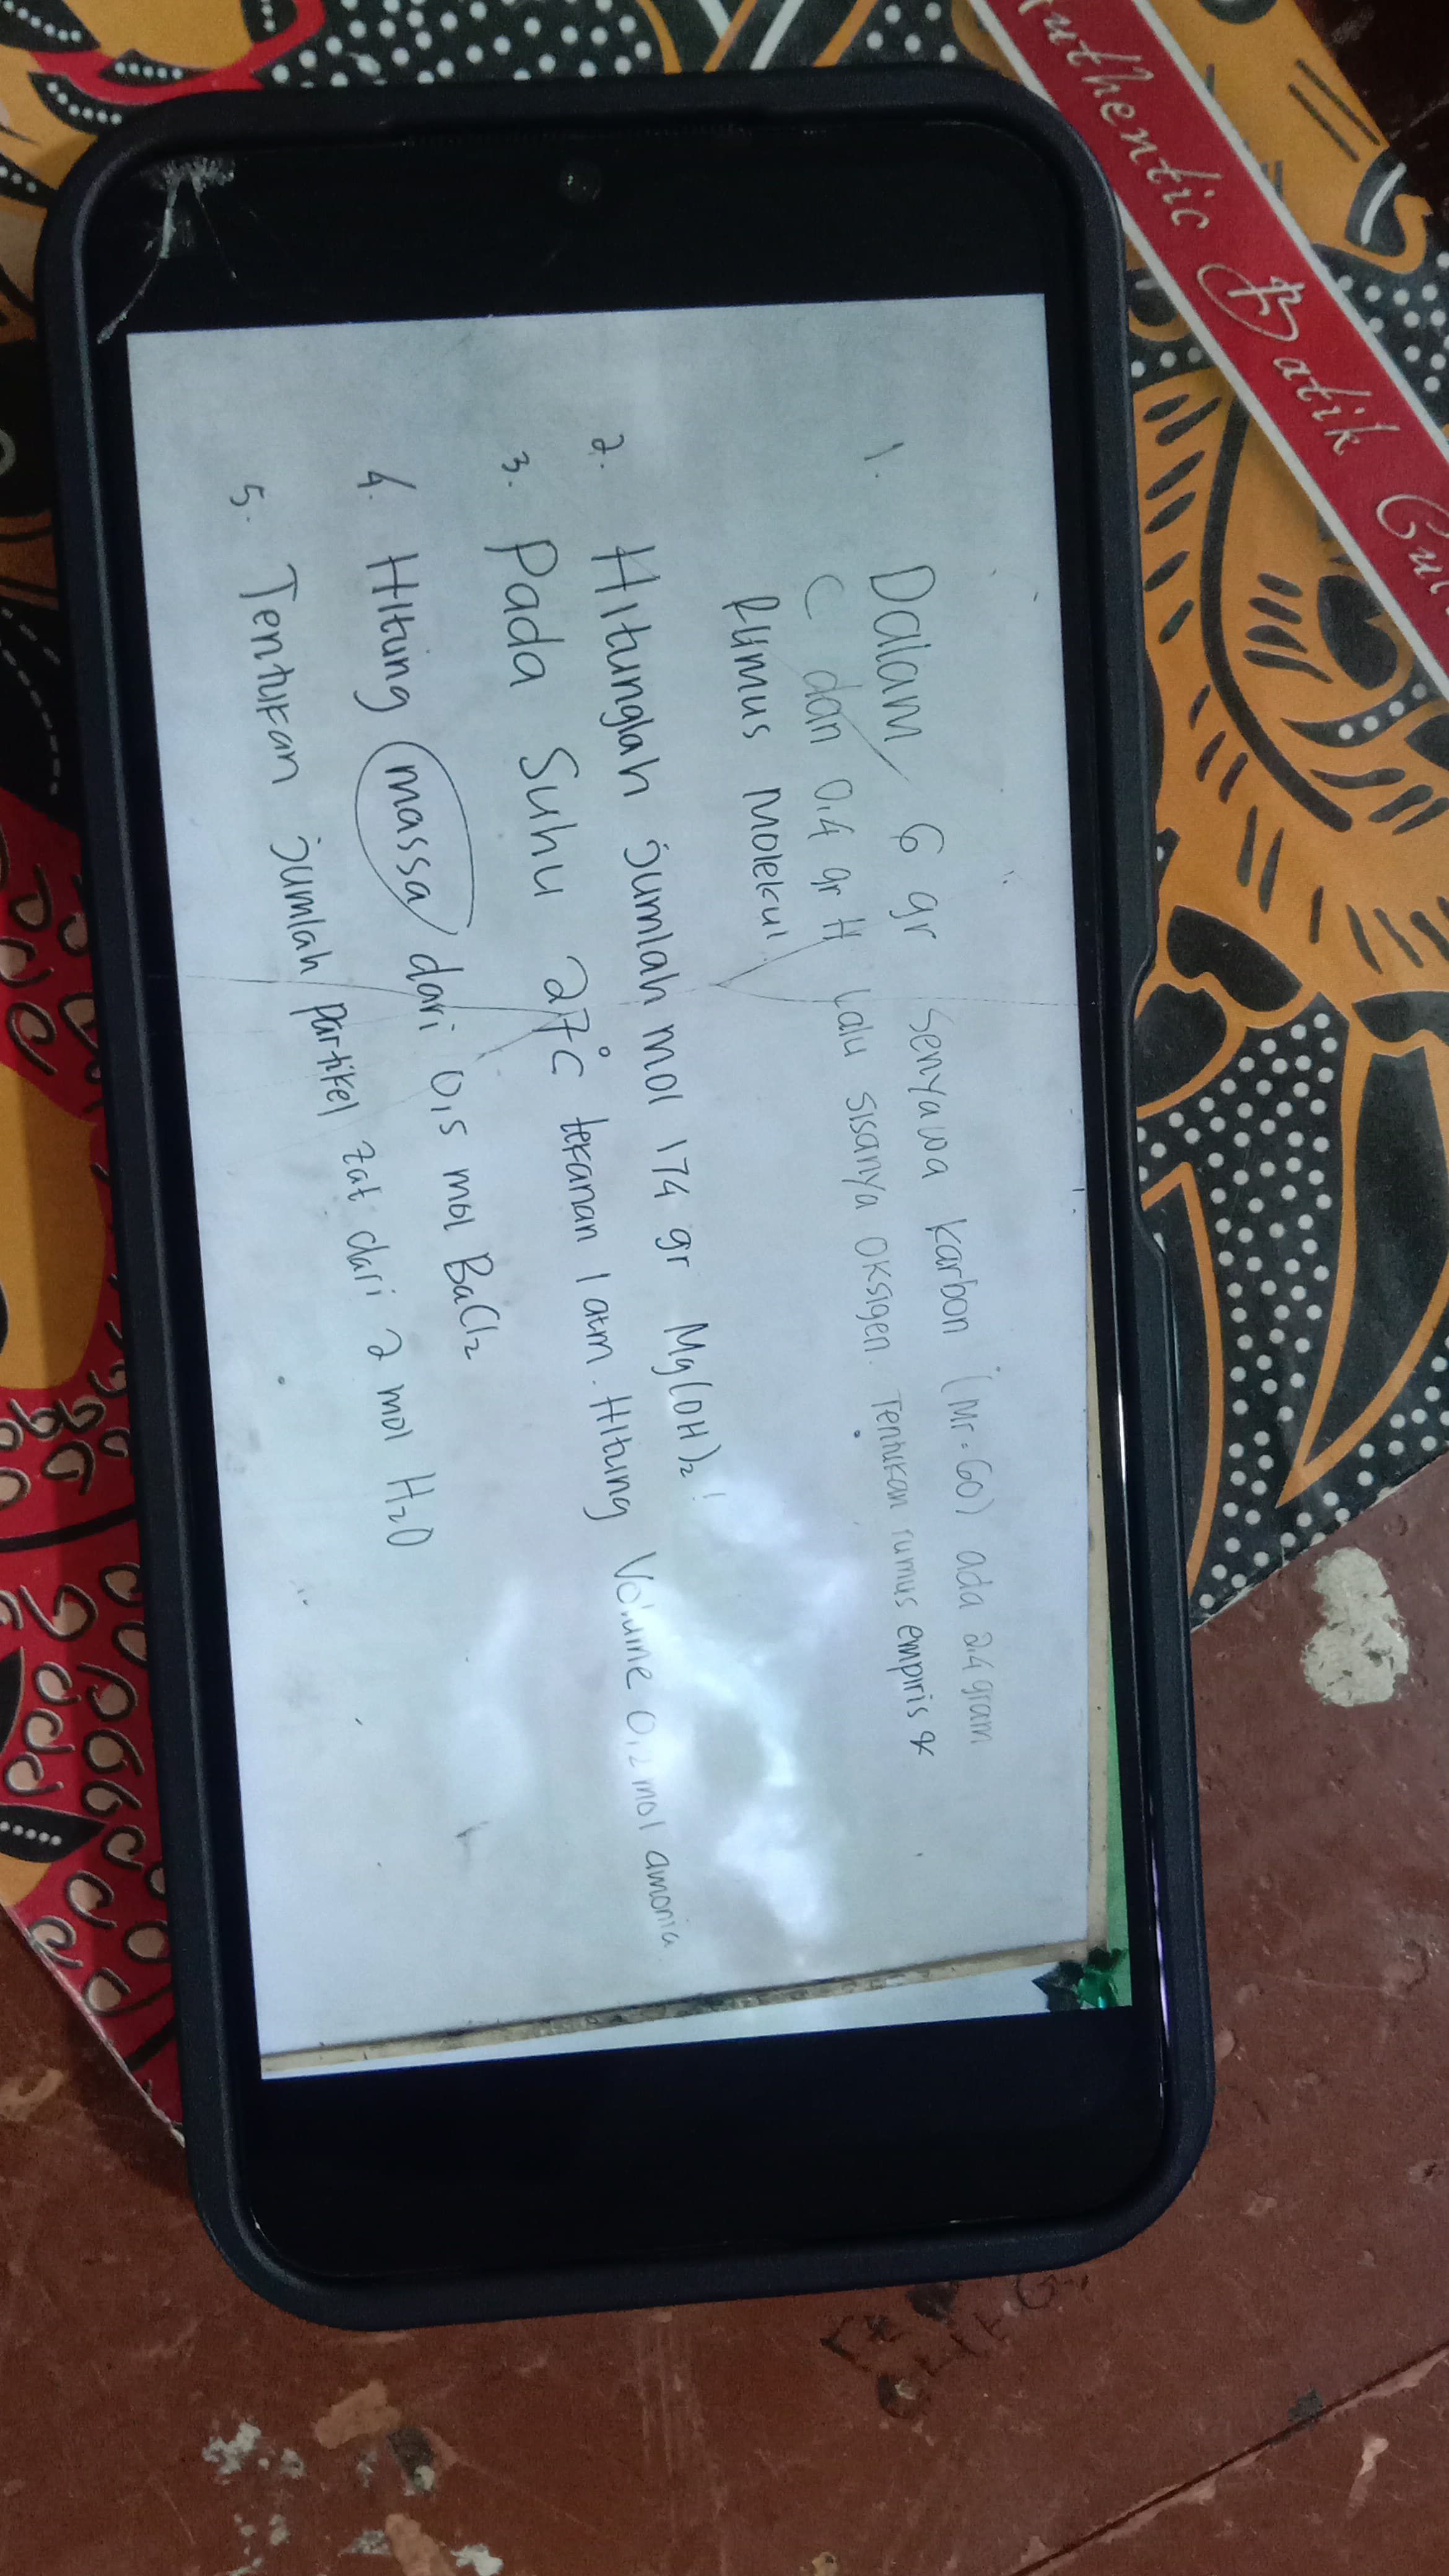 Authentic Batik Cu
1. Dalam 6 gr senyawa karbon (Mr = 60) ada 2,4 gram
C dan 0,4 gr H lalu sisanya oksigen. Tentukan rumus empiris &
Rumus molekul
2. Hitunglah jumlah mol 174 gr Mg(OH)₂!
3. Pada Suhu 27°C tekanan 1 atm. Hitung Volume 0,2 mol amonia
4. Hitung massa dari 0,5 mol BaCl₂
5. Tentukan jumlah partikel zat dari 2 mol H₂O